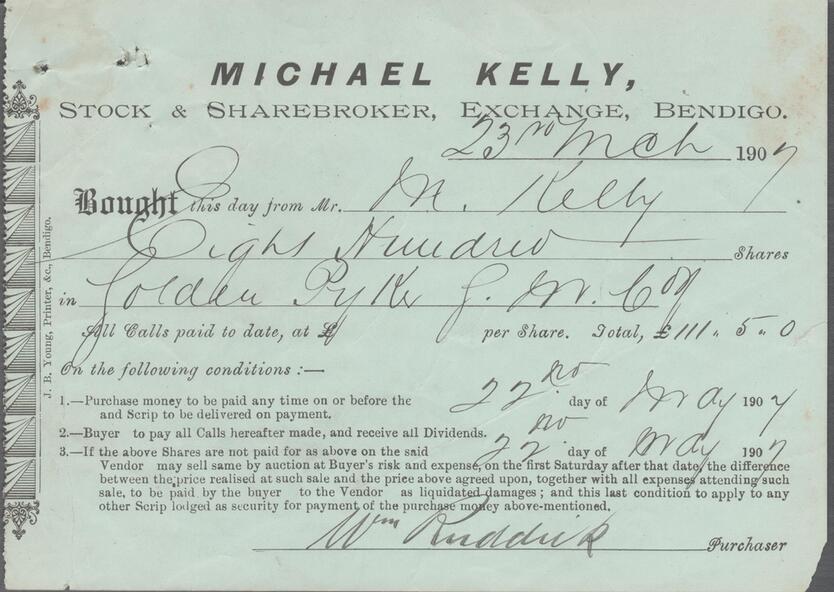 MICHAEL KELLY,
STOCK & SHAREBROKER, EXCHANGE, BENDIGO.
23rd Mch 1907
Bought this day from Mr. M. Kelly
Eight Hundred Shares
in Golden Pyke G. M. Coy
All Calls paid to date, at £ per Share. Total, £111 " 5 " 0
On the following conditions :—
1.—Purchase money to be paid any time on or before the 22nd day of May 1907
and Scrip to be delivered on payment.
2.—Buyer to pay all Calls hereafter made, and receive all Dividends.
3.—If the above Shares are not paid for as above on the said 22nd day of May 1907
Vendor may sell same by auction at Buyer's risk and expense, on the first Saturday after that date, the difference
between the price realised at such sale and the price above agreed upon, together with all expenses attending such
sale, to be paid by the buyer to the Vendor as liquidated damages ; and this last condition to apply to any
other Scrip lodged as security for payment of the purchase money above-mentioned.
Wm Ruddick Purchaser
J. B. Young, Printer, &c., Bendigo.